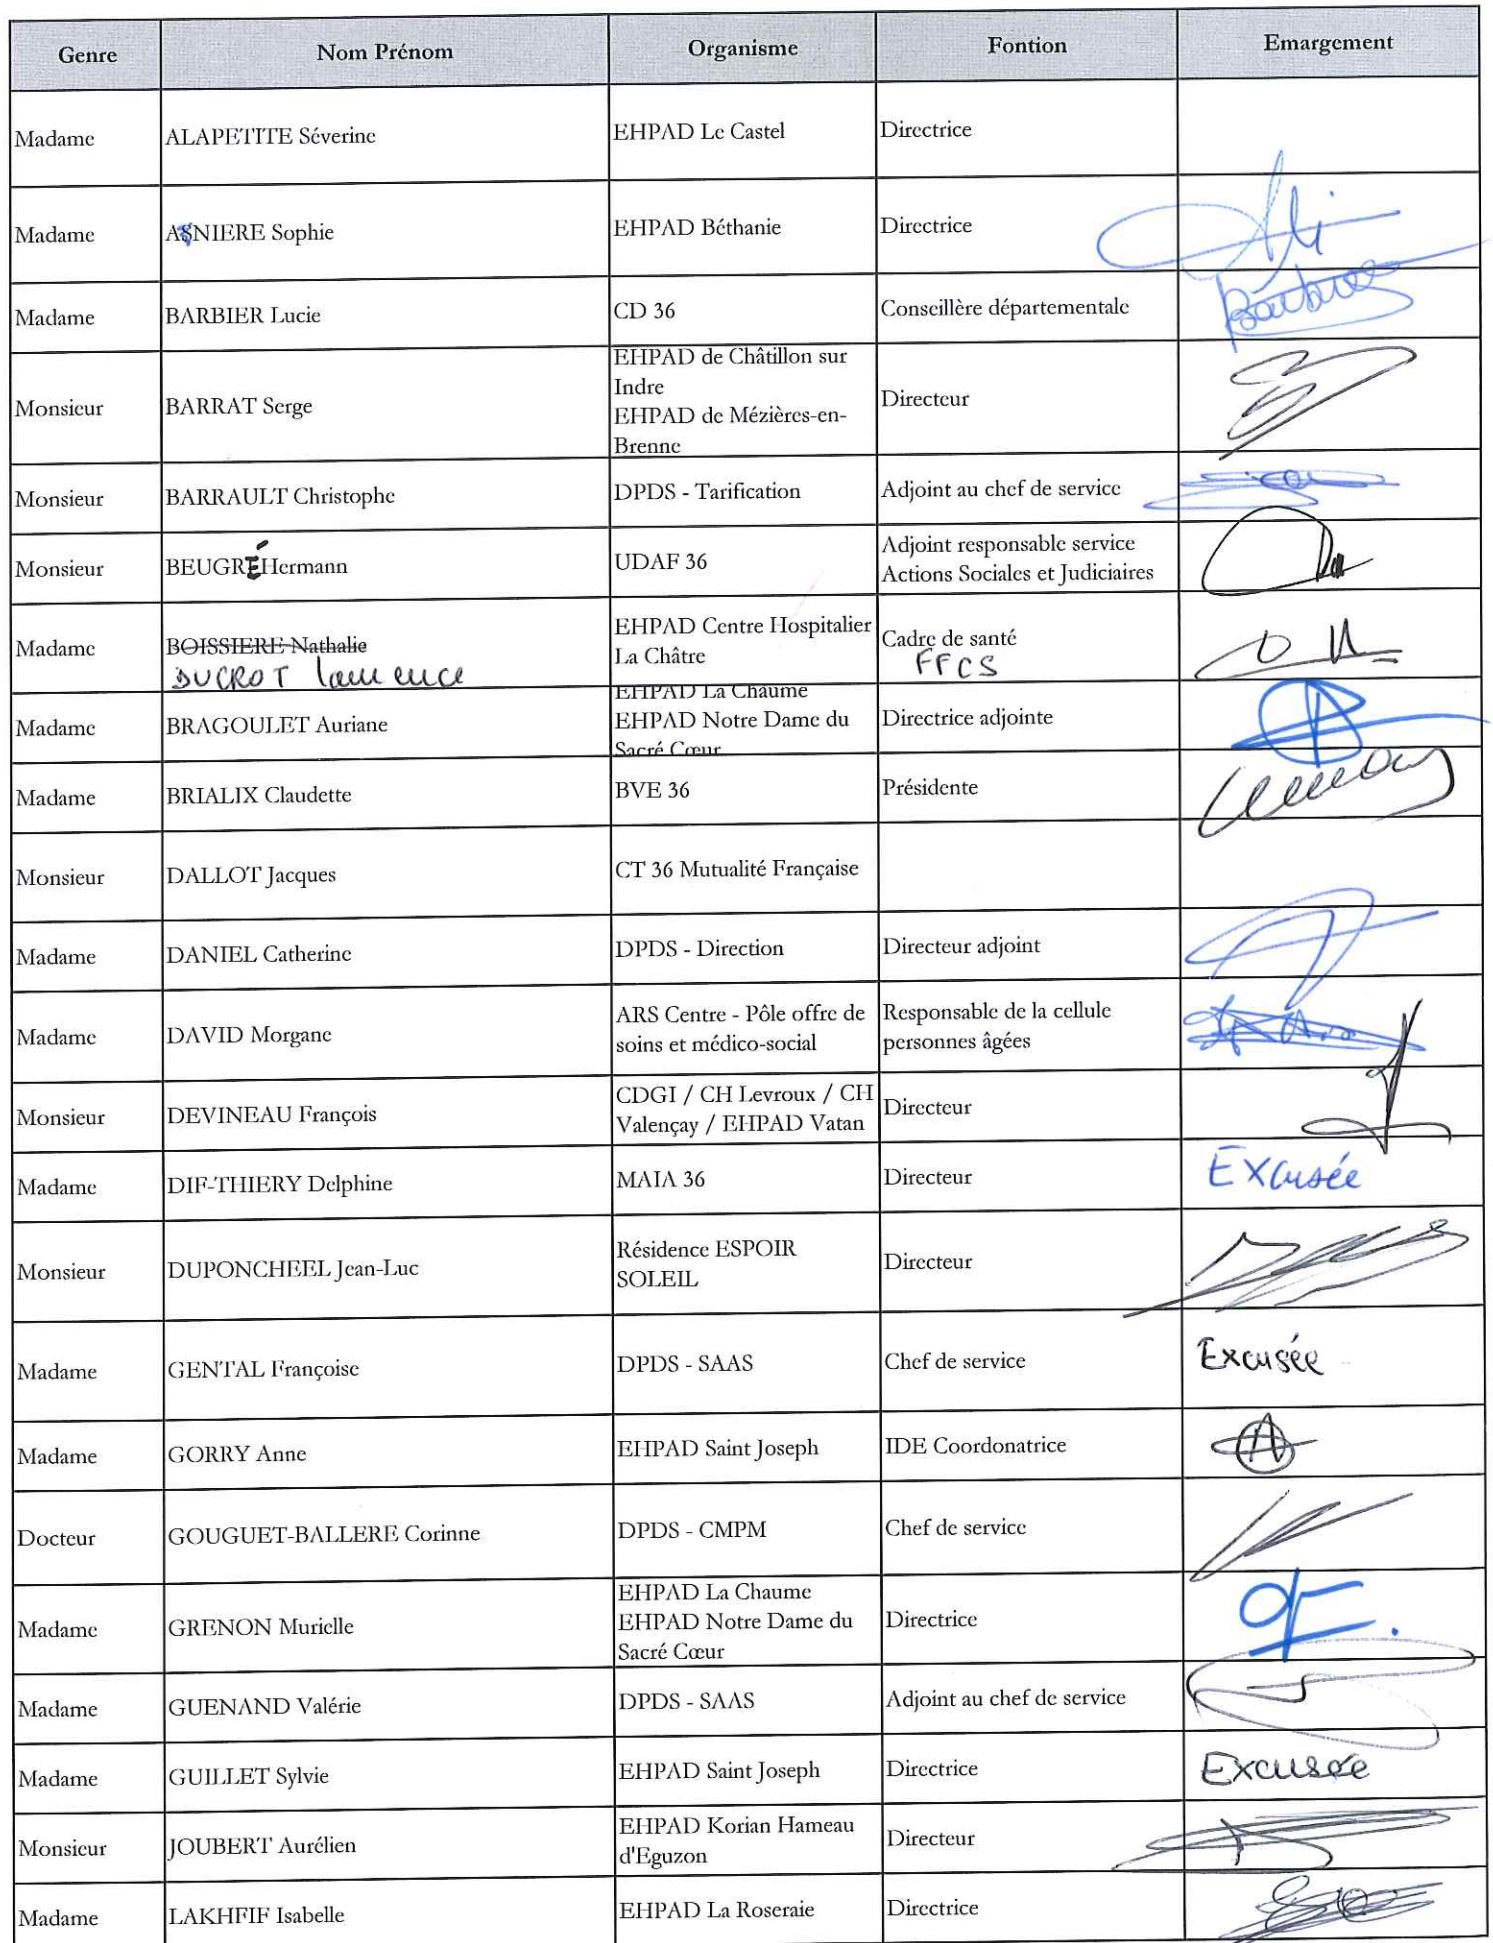 Genre Nom Prénom Organisme Fontion Emargement
Madame ALAPETITE Séverine EHPAD Le Castel Directrice
Madame ASNIERE Sophie EHPAD Béthanie Directrice
Madame BARBIER Lucie CD 36 Conseillère départementale
Monsieur BARRAT Serge EHPAD de Châtillon sur
Indre
EHPAD de Mézières-en-
Brenne Directeur
Monsieur BARRAULT Christophe DPDS - Tarification Adjoint au chef de service
Monsieur BEUGRÉ Hermann UDAF 36 Adjoint responsable service
Actions Sociales et Judiciaires
Madame BOISSIERE Nathalie
DUCROT Laurence EHPAD Centre Hospitalier
La Châtre Cadre de santé
FFCS
Madame BRAGOULET Auriane EHPAD La Chaume
EHPAD Notre Dame du
Sacré Cœur Directrice adjointe
Madame BRIALIX Claudette BVE 36 Présidente
Monsieur DALLOT Jacques CT 36 Mutualité Française
Madame DANIEL Catherine DPDS - Direction Directeur adjoint
Madame DAVID Morgane ARS Centre - Pôle offre de
soins et médico-social Responsable de la cellule
personnes âgées
Monsieur DEVINEAU François CDGI / CH Levroux / CH
Valençay / EHPAD Vatan Directeur
Madame DIF-THIERY Delphine MAIA 36 Directeur Excusée
Monsieur DUPONCHEEL Jean-Luc Résidence ESPOIR
SOLEIL Directeur
Madame GENTAL Françoise DPDS - SAAS Chef de service Excusée
Madame GORRY Anne EHPAD Saint Joseph IDE Coordonatrice
Docteur GOUGUET-BALLERE Corinne DPDS - CMPM Chef de service
Madame GRENON Murielle EHPAD La Chaume
EHPAD Notre Dame du
Sacré Cœur Directrice
Madame GUENAND Valérie DPDS - SAAS Adjoint au chef de service
Madame GUILLET Sylvie EHPAD Saint Joseph Directrice Excusée
Monsieur JOUBERT Aurélien EHPAD Korian Hameau
d'Eguzon Directeur
Madame LAKHFIF Isabelle EHPAD La Roseraie Directrice